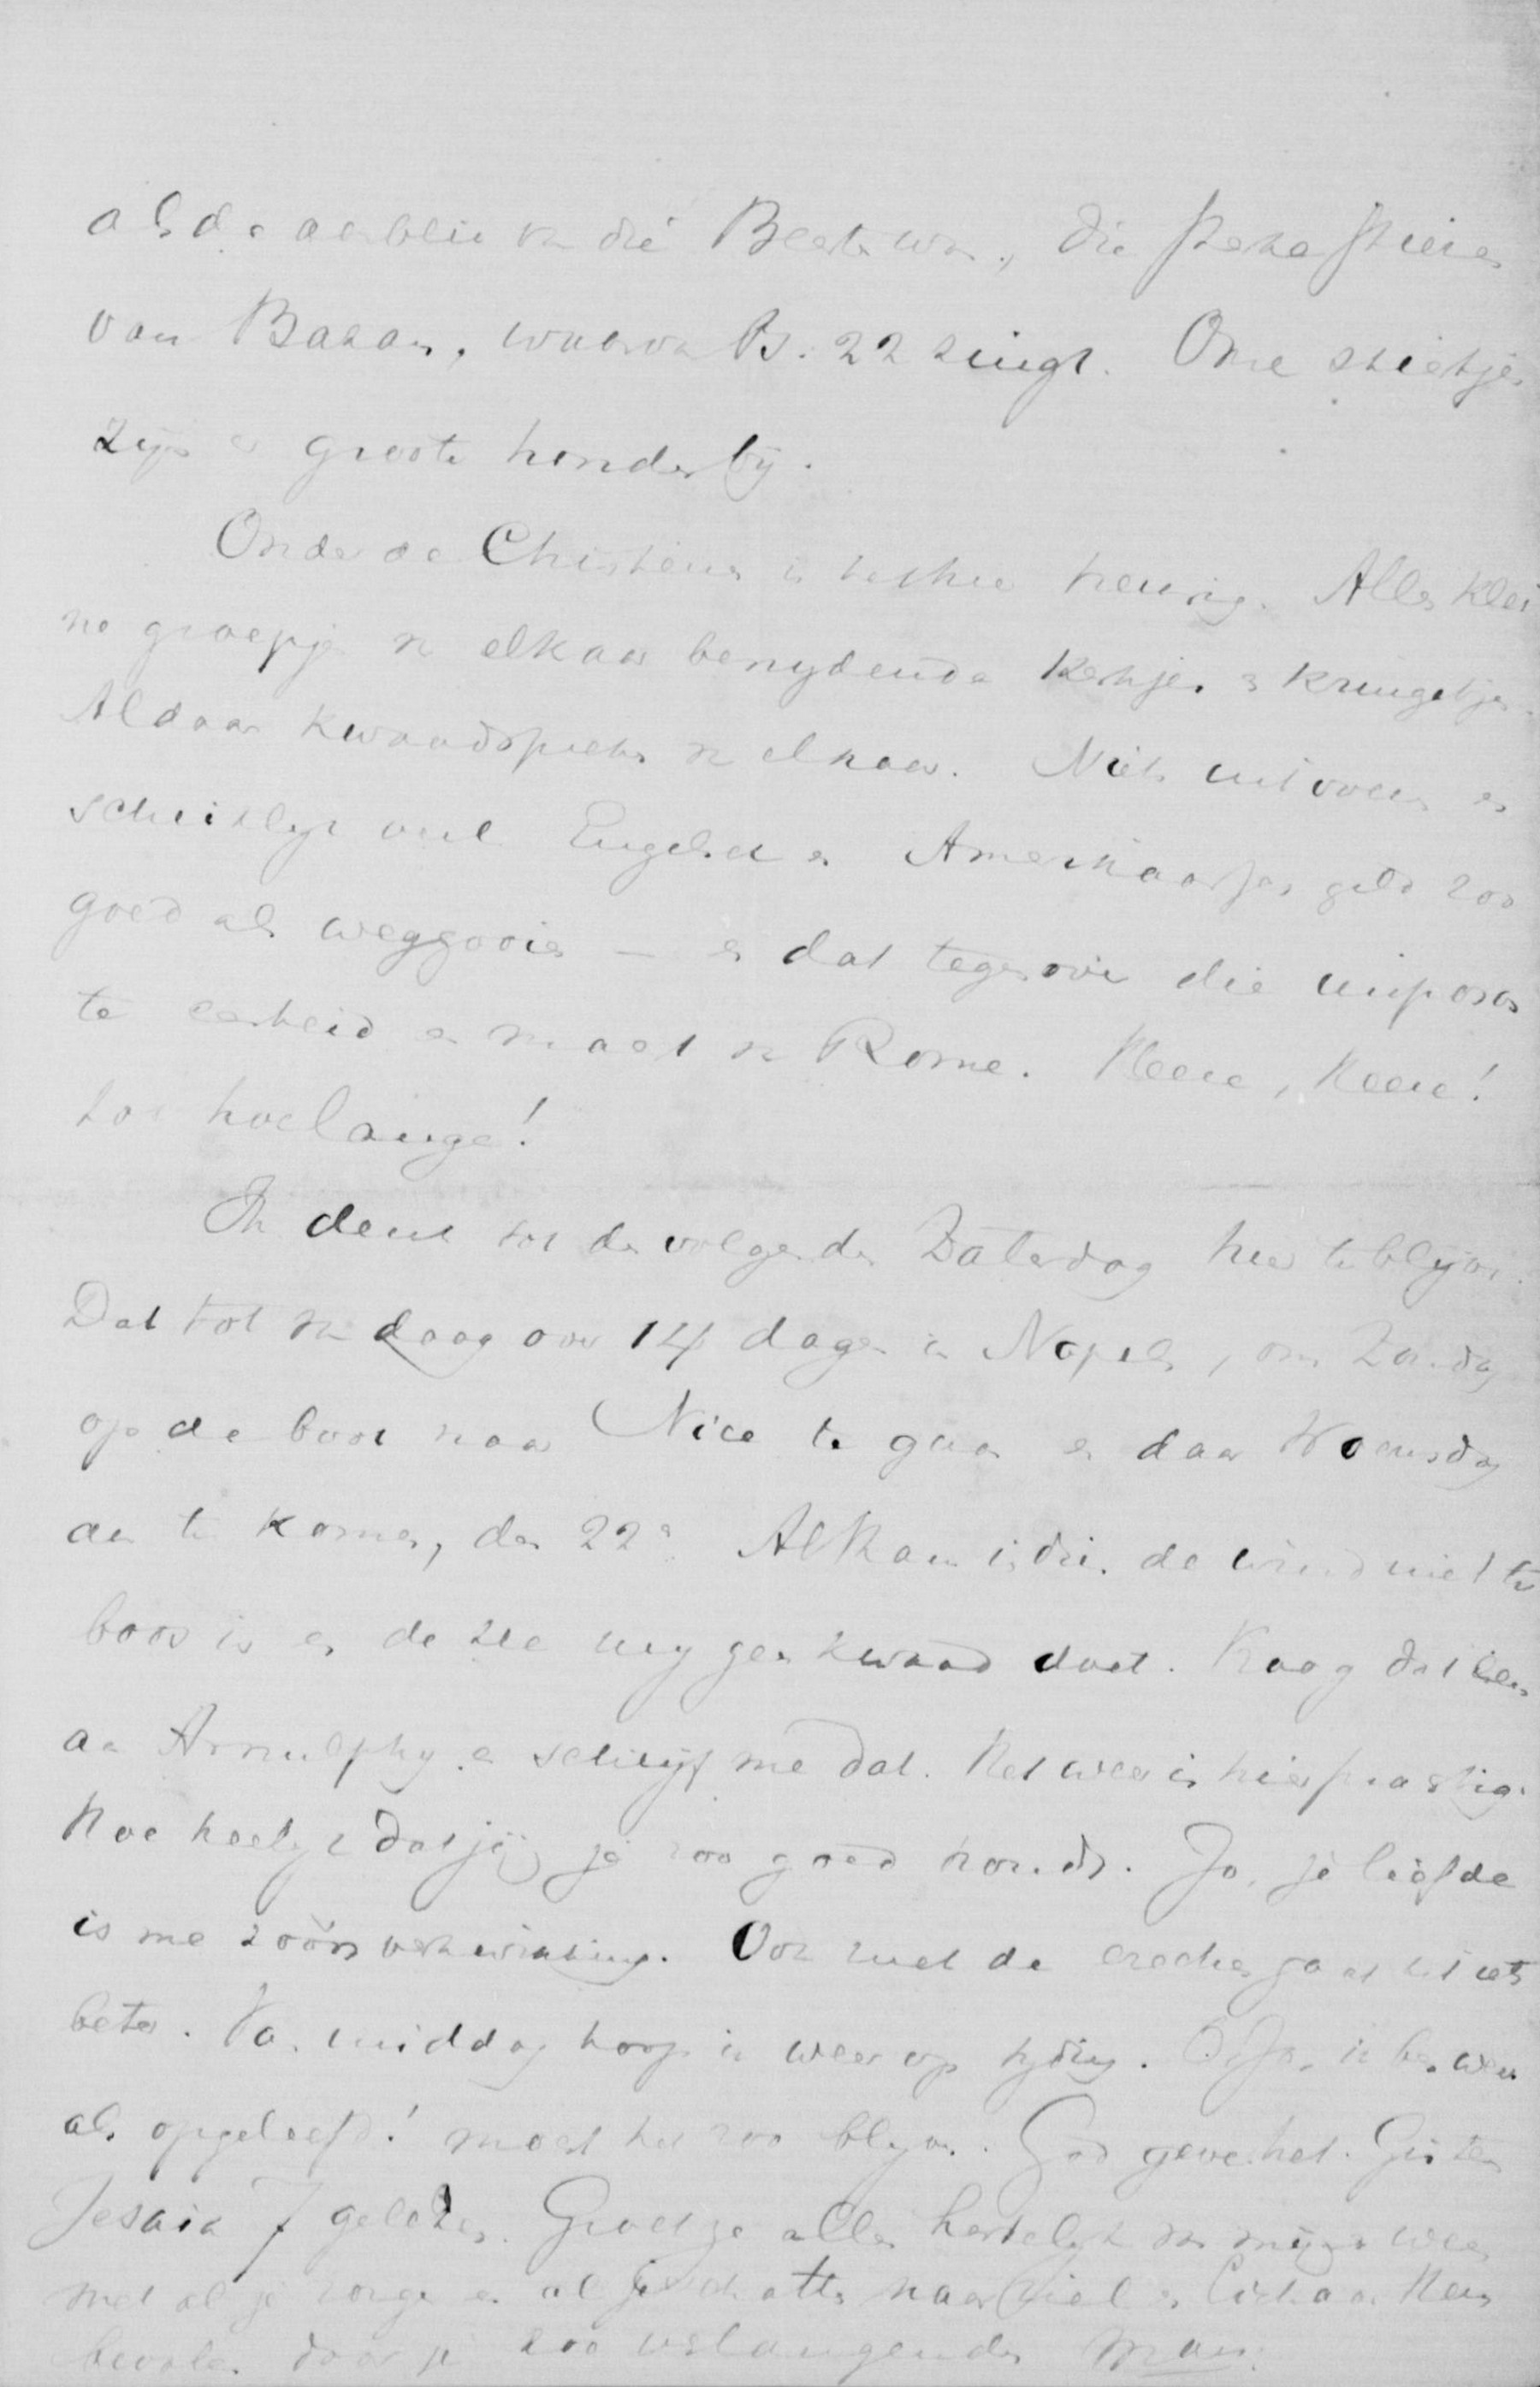 als de aanblik van die Beesten., die sterke stieren
van Basan, waarvan Ps. 22 zingt. Onze stiertjes
zijn er groote honden bij.
Onder de Christenen is het hier treurig. Alles klei
ne groepjes van elkaar benydende kerkjes en kringetjes.
Aldaar kwaadspreken van elkaar. Niets uitvoeren en
schrikelyk veel Engelsch en Amerikaansch geld zoo
goed als weggooien — en dat tegenover die imposan
te eenheid en macht van Rome. Heere, Heere!
tot hoelange!
Ik denk tot de volgende Zaterdag hier te blijven.
Dat tot van daag over 14 dagen in Napels, om Zondag
op de boot naar Nice te gaan en daar Woensdag
aan te komen, den 22e. Althans indien de wind niet te
boos is en de zee my geen kwaad doet. Vraag dat eens
aan Arnulphy en schrijf me dat. Het weer is hier prachtig.
Hoe heerlyk dat jij je zoo goed houdt. Ja, je liefde
is me zóó'n verkwikking. Ook met de crèche gaat het iets
beter. Van middag hoop ik weer op tyding. O Ja, ik ben weer
als opgeleefd! mocht het zoo blyven. God geve het. Gisteren
Jesaia 7 gelezen. Groet ze allen hartelyk van mij en wees
met al je zorgen en al je schatten naar ziel en lichaam Hem
bevolen door je zoo verlangende man.